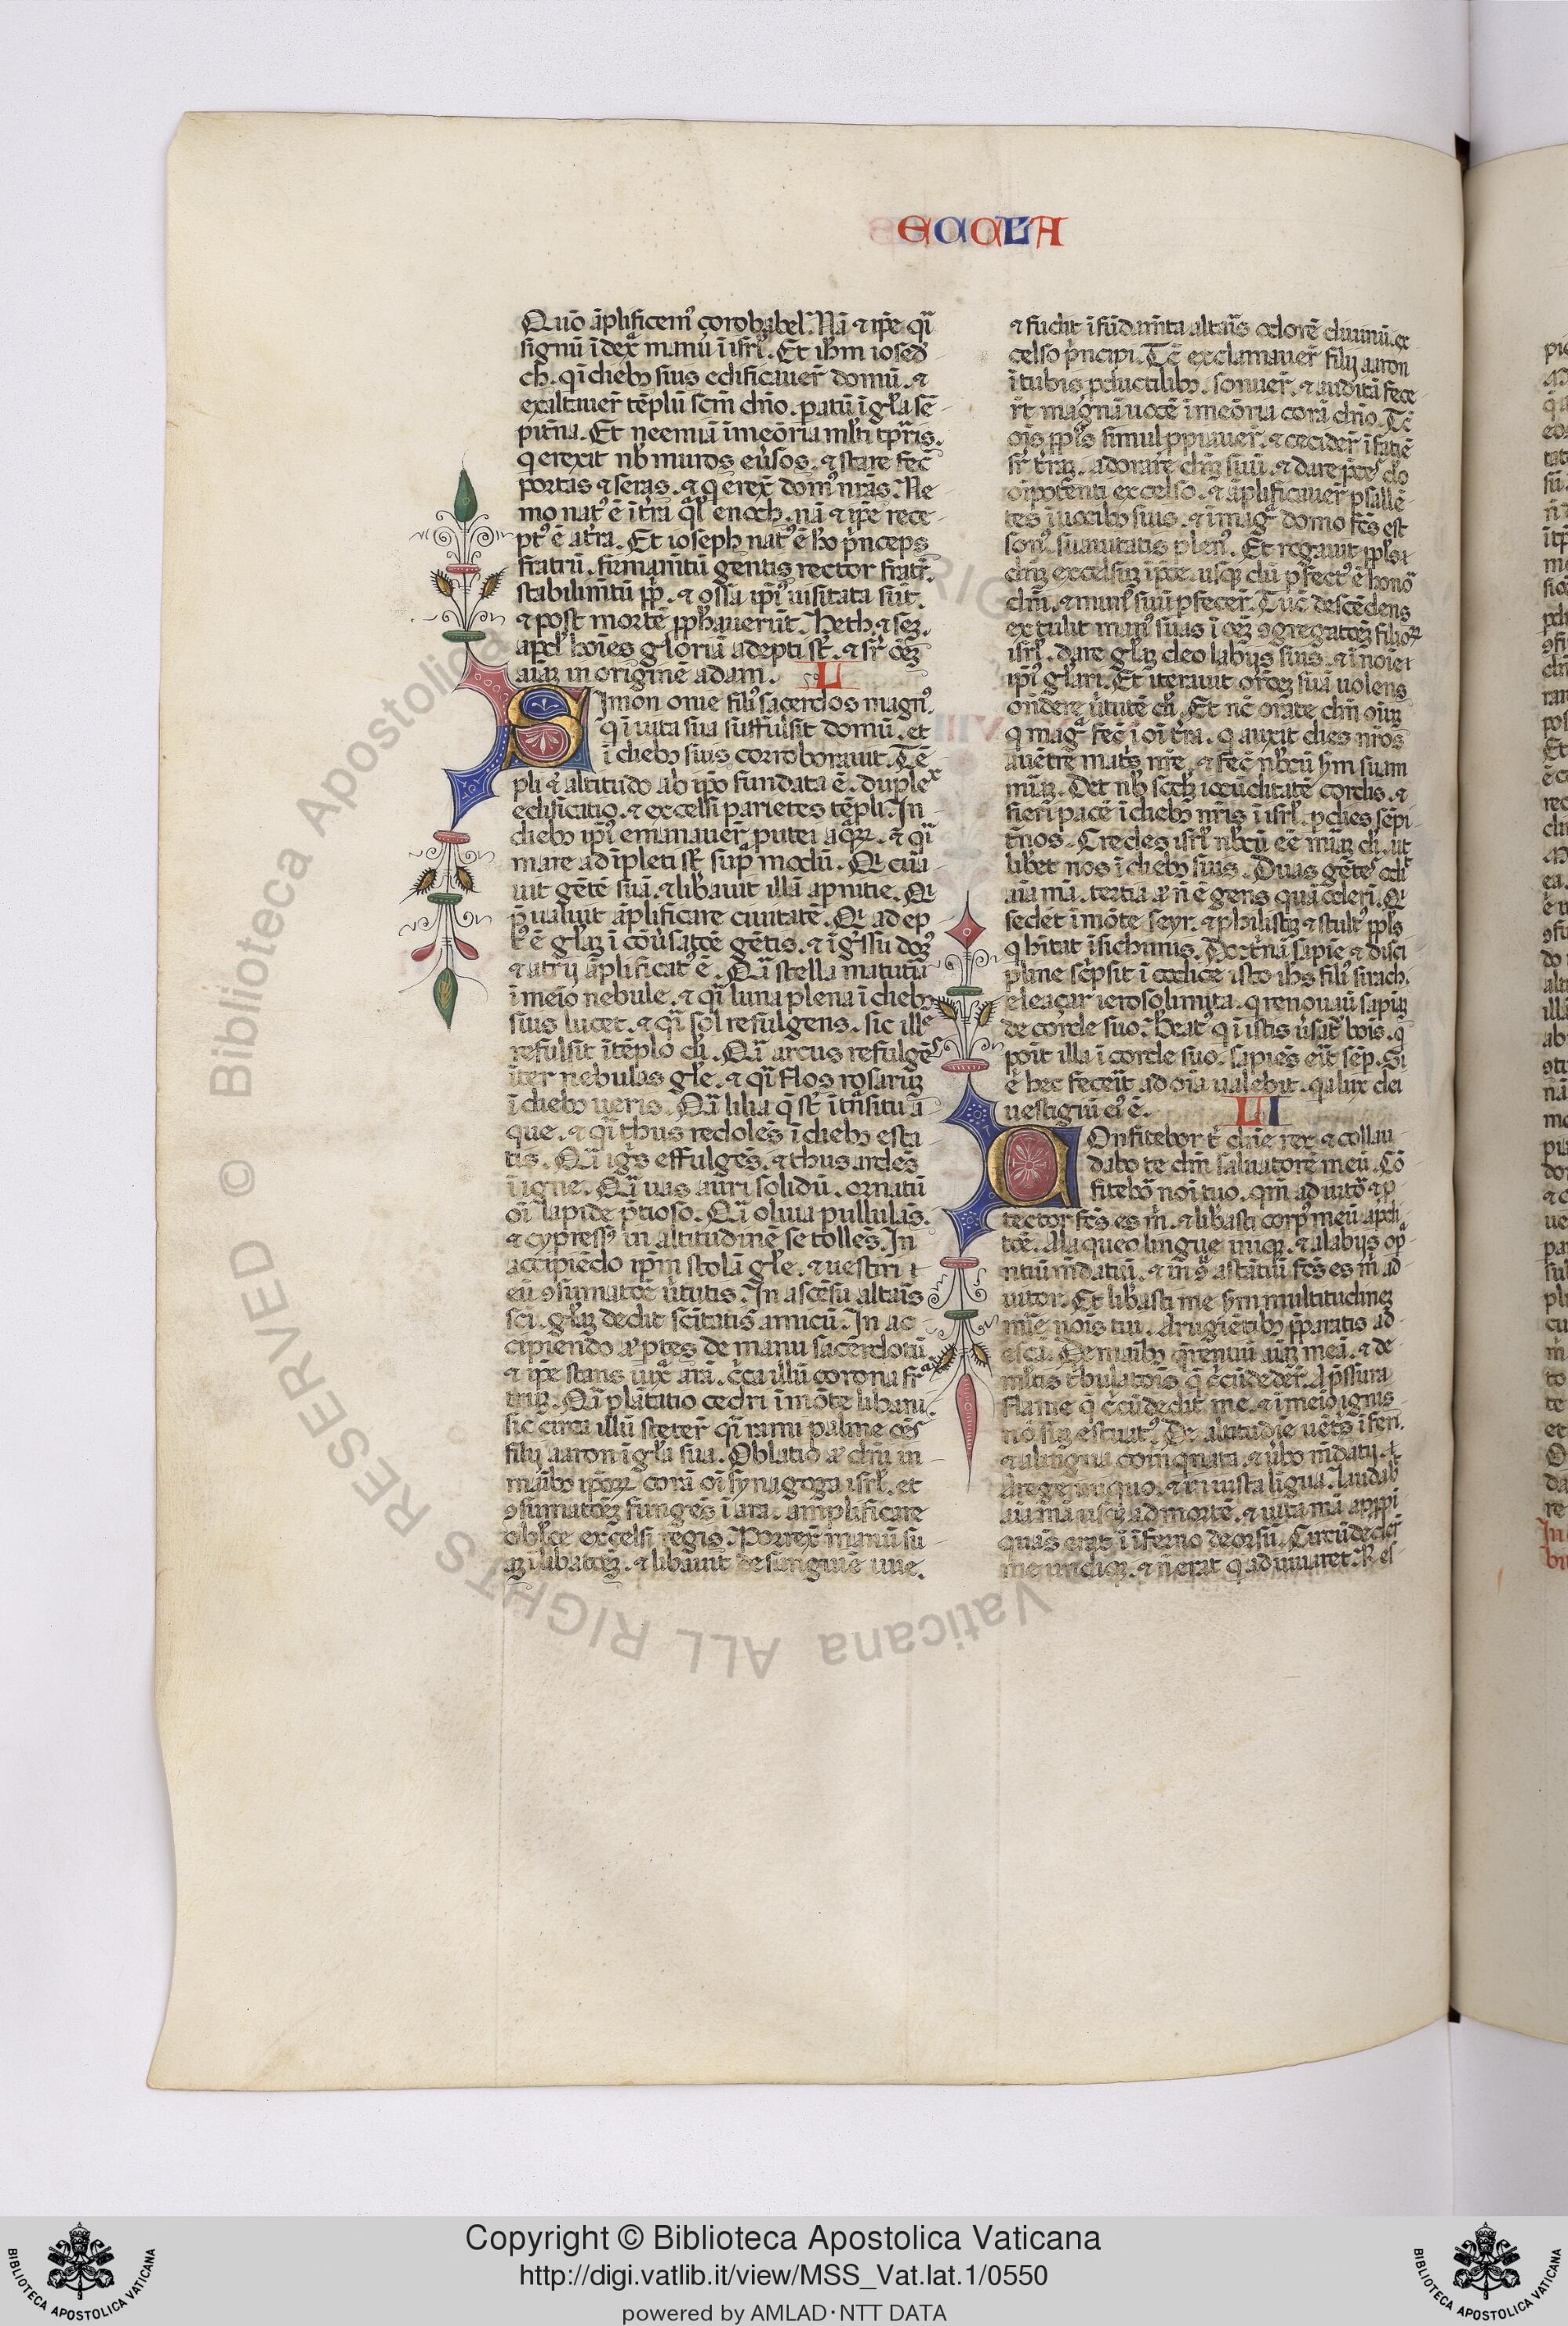 ECCLA
Quō āplificem᷒ çorobabel. Nā ⁊ ip̄e qͣi
signū ī dex̄ manū ī isrl̄. Et ih̄m iosed
ch. qͥ ī diebꝫ suis edificauer̄ domū. ⁊
exaltauer̄ tēplū sc̄m dn̄o. patū ī gl̄a sē
pit̄na. Et neemiā ī meōria ml̄ti tp̄ris.
q̇ erexit nb̄ muros eu̇sos. ⁊ stare fec̄
portas ⁊ seras. ⁊ q̇ erex̄ dom᷒ nr̄as. Ne
mo nat᷒ ē ī tr̄a qͣl̄ enoch. nā ⁊ ip̄e rece
pt᷒ ē a tr̄a. Et ioseph nat᷒ ē hō pͥnceps
fratrū. firmam̄tū gentis rector fratr̄.
stabilim̄tū pp̄l. ⁊ ossa ip̄i᷒ uisitata sūt.
⁊ post mortē ꝓph̄auerūt. Seth ⁊ sem.
apd̄ hoīes gloriā adepti st̄. ⁊ sr̄ oēꝫ
aīaꝫ in originē adam.
L
Simon onie fili᷒ sacerdos magn᷒.
q̇ ī uita sua suffulsit domū. et
ī diebꝫ suis corroborauit. Tē
pli ⁊ altitudo ab ip̄o fundata ē. duplex
edificatio. ⁊ excelsi parietes tēpli. In
diebꝫ ip̄i᷒ emanauer̄ putei aqͣꝝ. ⁊ qͣi
mare adipleti st̄ supͣ modū. Qi cura
uit gētē suā. ⁊ libauit illā a pnitie. Qi
p̄ualuit āplificare ciuitatē. Qi adep
t᷒ ē gl̄aꝫ ī cōu̇satōe gētis. ⁊ īgͤssū dom᷒
⁊ atrij āplificat᷒ ē. Qͣi stella matutīa
ī meīo nebule. ⁊ qͣi luna plena ī diebꝫ
suis lucet. ⁊ qͣi sol refulgens. sic ille
refulsit ī tēplo di. Qͣi arcus refulgēs
īter nebulas gl̄e. ⁊ qͣi flos rosarum
ī diebꝫ ueris. Qͣi lilia q̄ st̄ ī tn̄situ a
que. ⁊ qͣi thus redolēs ī diebꝫ esta
tis. Qͣi igͥs effulgēs. ⁊ thus ardēs
ī igne. Qͣi uas auri solidū. ornatū
oī lapide p̄tioso. Qͣi oliua pullulās.
⁊ cypress᷒ in altitudinē se tollēs. In
accipiēdo ip̄m stolā gl̄e. ⁊ uestiri ī
eū ꝯsumatōe u̇tutis. In ascēsu altaris
sc̄i. gl̄aꝫ dedit sc̄itatis amicū. In ac
cipiendo aū ptes de manu sacerdotū.
⁊ ip̄e stans iuxͣ arā. cͥca illū corona frͣ
trum. Qͣi plātatio cedri ī mōte libani.
sic circa illū steter̄ qͣi rami palme oēs
filij aaron ī gl̄a sua. Oblatio aū dn̄i in
manibꝫ ip̄oꝝ corā oī synagoga isrl̄. et
ꝯsumatōeꝫ fungēs ī ara. amplificare
oblōe excelsi regis. Porrex̄ manū su
aꝫ ī libatōeꝫ. ⁊ libauit de sanguine uue.
⁊ fudit ī fūdam̄ta altaris odorē diuinū. ex
celso pͥncipi. Tc̄ exclamauer̄ filij aaron
ī tubis pductilibꝫ. sonuer̄. ⁊ auditā fece
rt̄ magnā uocē ī meōria corā dn̄o. Tc̄
oīs pp̄ls simul ꝓpauer̄. ⁊ cecider̄ ī faciē
sr̄ tr̄aꝫ. adorare dn̄ꝫ suū. ⁊ dare pces do
oīpotenti excelso. ⁊ āplificauer̄ psallē
tes ī uocibꝫ suis. ⁊ ī magͣ domo fc̄s est
son᷒ suauitatis plen᷒. Et rogauit pp̄ls
dn̄ꝫ excelsuꝫ ī pce. usqꝫ dū pfect᷒ ē honō
dn̄i. ⁊ mun᷒ suū pfecer̄. Tūc descēdens
extulit man᷒ suas ī oēꝫ ꝯgregatōeꝫ filioꝝ
isrl̄. dare gl̄aꝫ deo labijs suis. ⁊ ī noīe
ip̄i᷒ gl̄ari. Et iterauit orōeꝫ suā uolens
ondere u̇tutē di. Et nc̄ orate dn̄m oīuꝫ
q̇ magͣ fec̄ ī oī tr̄a. q̇ auxit dies nr̄os
a uētre matͥs nr̄e. ⁊ fec̄ nb̄cū ẜm suam
mīaꝫ. Det nb̄ iocūditatē cordis. ⁊
fieri pacē ī diebꝫ nr̄is ī isrl̄. p dies sēpi
tn̄os. Credēs isrl̄ nb̄cū eē mīaꝫ di. ut
libet nos ī diebꝫ suis. Duas gētes odit
aīa mā. tertia aū n̄ ē gens quā oderī. Qi
sedēt ī mōte seyr. ⁊ philistij ⁊ stult᷒ pp̄ls
q̇ hītat ī sichimis. Doctͥnā sapiē ⁊ disci
pline scͥpsit ī codice isto ih̄s fili᷒ sirach.
eleaçar ierosolimita. q̇ renouauit sapīaꝫ
de corde suo. Beat᷒ q̇ ī istis u̇sat᷒ bonis. q̇
poīt illa ī corde suo. sapiēs erit sēp. Si
ē hec fecerit ad oīa ualebit. qͥa lux dei
uestigiū ei᷒ ē.
LI
COnfitebor t̄ dn̄e rex ⁊ collau
dabo te dn̄m saluatorē meū. Cō
fitebꝫ noī tuo. qm̄ adiutō ⁊ p
tector fc̄s es m̄. ⁊ libasti corp᷒ meū a pdi
tōe. A laqueo lingue iniqͥ. ⁊ a labijs op̄a
ntiū m̄datiū. ⁊ ī ꝯspectu astātiū fc̄s es m̄ ad
iutor. Et libasti me ẜm multitudineꝫ
mīe nois tui. A rugiētibꝫ ꝓparatis ad
escā. De manibꝫ qͣrentiū aīaꝫ meā. ⁊ de
ml̄tis tͥbulatōis q̄ cͥcūdeder̄. A p̄ssura
flame q̄ cͥcūdedit me. ⁊ ī meīo ignis
nō suꝫ estuat᷒. De altitudīe uētris īferi.
⁊ a lingua coīquinata. ⁊ u̇bo m̄datij.
A rege iniquo. ⁊ a iniusta ligua. Laudabit
aīa mā usqꝫ ad mortē. ⁊ uita mā apropi
quās erat ī īferno deorsū. Circūdeder̄
me undiqꝫ. ⁊ n̄ erat q̇ adiuuaret. Res
Copyright © Biblioteca Apostolica Vaticana
http://digi.vatlib.it/view/MSS_Vat.lat.1/0550
powered by AMLAD·NTT DATA
BIBLIOTECA APOSTOLICA VATICANA
BIBLIOTECA APOSTOLICA VATICANA
© Biblioteca Apostolica Vaticana ALL RIGHTS RESERVED